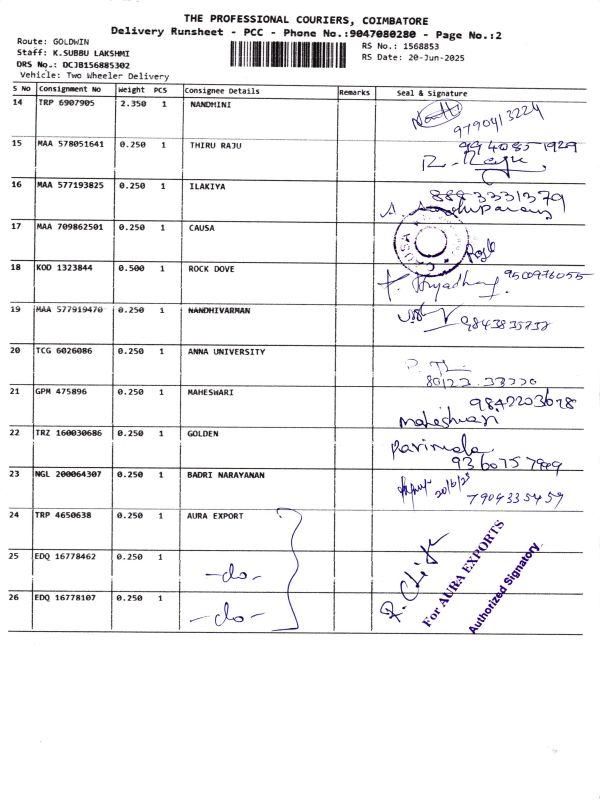 THE PROFESSIONAL COURIERS, COIMBATORE
Delivery Runsheet - PCC - Phone No.:9047080280 - Page No.:2
Route: GOLDWIN
RS No.: 1568853
Staff: K.SUBBU LAKSHMI
RS Date: 20-Jun-2025
DRS No.: DCJB156885302
Vehicle: Two Wheeler Delivery
S No Consignment No Weight PCS Consignee Details Remarks Seal & Signature
14 TRP 6907905 2.350 1 NANDHINI
9790413224
15 MAA 578051641 0.250 1 THIRU RAJU
9940851929
16 MAA 577193825 0.250 1 ILAKIYA
8883331379
17 MAA 709862501 0.250 1 CAUSA
CAUSA
18 KOD 1323844 0.500 1 ROCK DOVE
9500976055
19 MAA 577919470 0.250 1 NANDHIVARMAN
9843835737
20 TCG 6026086 0.250 1 ANNA UNIVERSITY
21 GPM 475896 0.250 1 MAHESWARI
9842203678
maheshwari
22 TRZ 160030686 0.250 1 GOLDEN
Parimala
9360757909
23 NGL 200064307 0.250 1 BADRI NARAYANAN
20/6/25
7904335459
24 TRP 4650638 0.250 1 AURA EXPORT
25 EDQ 16778462 0.250 1
-do-
26 EDQ 16778107 0.250 1
-do-
For AURA EXPORTS
Authorized Signatory